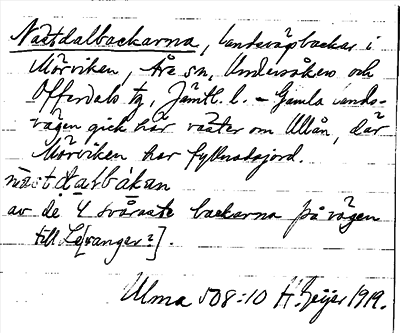 Nästdalbackarna, landsvägsbackar i
Mörviken, Åre sn, Undersåkers och
Offerdals tg, Jämtl. l. – Gamla lands-
vägen gick här väster om Ullån, där
Mörviken har fyllnadsjord.
av de 4 svåraste backarna på vägen
till Le[vanger?].
Ulma 508:10 H. Geijer 1919.